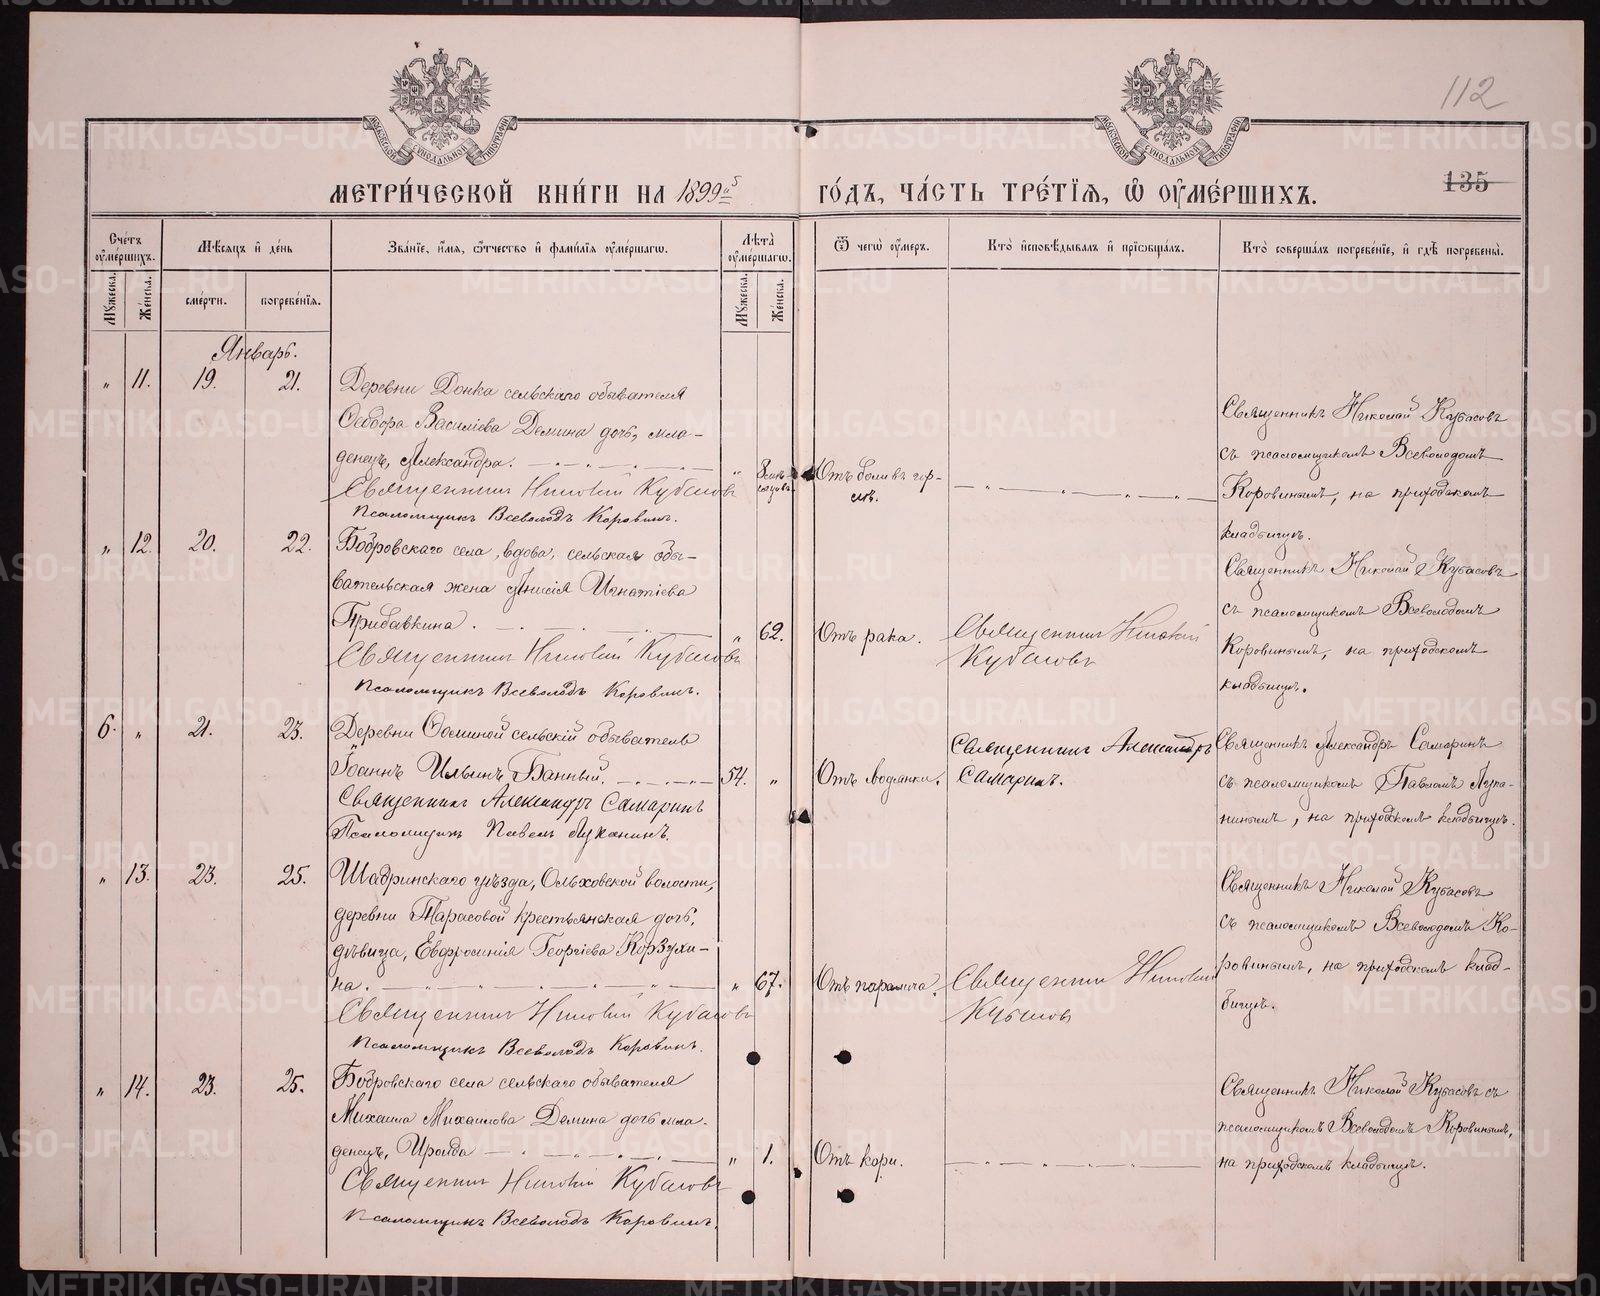 112
135
МЕТРИ́ЧЕСКОЙ КНИ́ГИ НА 1899й ГО́ДЪ, ЧА́СТЬ ТРЕ́ТІЯ, Ѡ ОУ҆МЕ́РШИХЪ.
Сче́тъ оу҆ме́ршихъ.
Мѣ́сяцъ и де́нь
Зва́нїе, и҆́мя, ѻ҆́тчество и фами́лїя оу҆ме́ршагѡ.
Лѣ́та оу҆ме́ршагѡ.
Ѿ чегѡ̀ оу҆́меръ.
Кто̀ и҆сповѣ́дывалъ и прїѡбща́лъ.
Кто̀ соверша́лъ погребе́нїе, и гдѣ̀ погребены̀.
Му́жеска.
Же́нска.
сме́рти.
погребе́нїя.
Му́жеска.
Же́нска.
Январь.
„ 11. 19. 21.
Деревни Донка сельскаго обывателя
Ѳеодора Василіева Демина дочь, мла-
денецъ, Александра.
Священникъ Николай Кубасовъ
Псаломщикъ Всеволодъ Коровинъ.
„
Отъ боли въ гор-
лѣ.
Священникъ Николай Кубасовъ
съ псаломщикомъ Всеволодомъ
Коровинымъ, на приходскомъ
кладбищѣ.
„ 12. 20. 22.
Бобровскаго села, вдова, сельская обы-
вательская жена Анисія Игнатіева
Прибавкина.
Священникъ Николай Кубасовъ
Псаломщикъ Всеволодъ Коровинъ.
„ 62.
Отъ рака.
Священникъ Николай
Кубасовъ
Священникъ Николай Кубасовъ
съ псаломщикомъ Всеволодомъ
Коровинымъ, на приходскомъ
кладбищѣ.
6. „ 21. 23.
Деревни Ѳоминой сельскій обыватель
Іоаннъ Ильинъ Банный.
Священникъ Александръ Самаринъ
Псаломщикъ Павелъ Луканинъ.
54. „
Отъ водянки.
Священникъ Александръ
Самаринъ.
Священникъ Александръ Самаринъ
съ псаломщикомъ Павломъ Лука-
нинымъ, на приходскомъ кладбищѣ.
„ 13. 23. 25.
Шадринскаго уѣзда, Ольховской волости,
деревни Тарасовой крестьянская дочь,
дѣвица, Евфросинія Георгіева Корзухи-
на.
Священникъ Николай Кубасовъ
Псаломщикъ Всеволодъ Коровинъ.
„ 67.
Отъ паралича.
Священникъ Николай
Кубасовъ
Священникъ Николай Кубасовъ
съ псаломщикомъ Всеволодомъ Ко-
ровинымъ, на приходскомъ клад-
бищѣ.
„ 14. 23. 25.
Бобровскаго села сельскаго обывателя
Михаила Михаилова Демина дочь мла-
денецъ, Ираида
Священникъ Николай Кубасовъ
Псаломщикъ Всеволодъ Коровинъ.
„ 1.
Отъ кори.
Священникъ Николай Кубасовъ съ
псаломщикомъ Всеволодомъ Коровинымъ,
на приходскомъ кладбищѣ.
METRIKI.GASO-URAL.RU